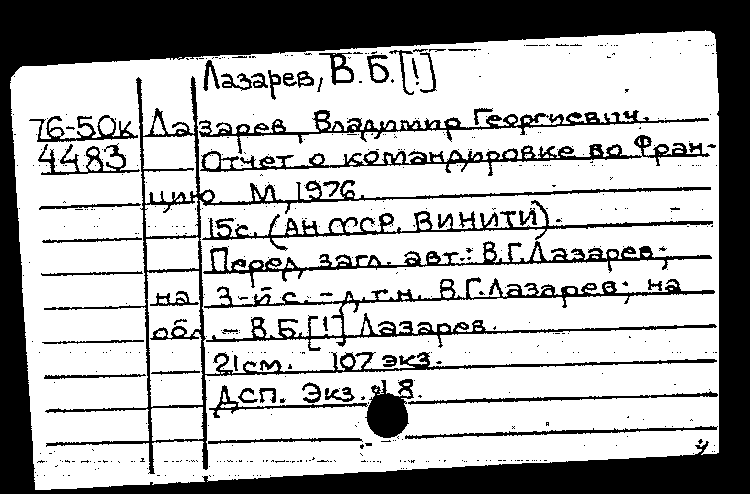 Лазарев, В.Б.[!]
76-50к Лазарев, Владимир Георгиевич.
4483 Отчет о командировке во Фран-
цию М., 1976.
15с. (АН СССР. ВИНИТИ).
Перед загл. авт.: В.Г.Лазарев;
на 3-й с. - д.т.н. В.Г.Лазарев; на
обл. - В.Б.[!] Лазарев.
21см. 107 экз.
ДСП. Экз. 8.